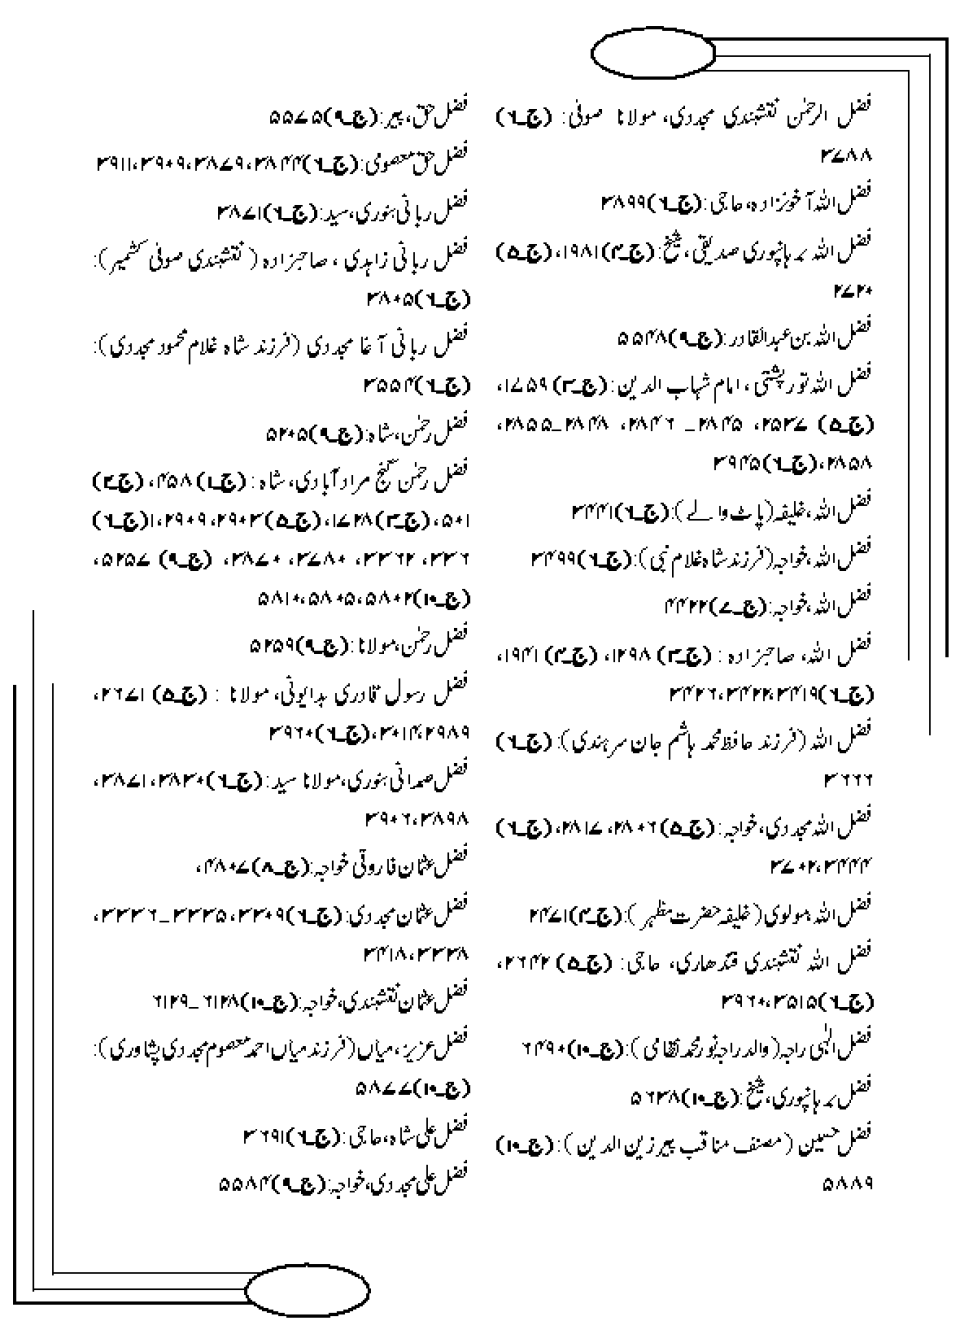 فضل الرحمٰن نقشبندی مجددی، مولانا صوفی: (ج_٦)
۳۷۸۸
فضل اللہ آخونزادہ، حاجی: (ج_٦) ۳۸۹۹
فضل اللہ برہانپوری صدیقی، شیخ: (ج_۴) ۱۹۸۱، (ج_۵)
۲۷۲۰
فضل اللہ بن عبدالقادر: (ج_۹) ۵۵۴۸
فضل اللہ تورپشتی، امام شہاب الدین: (ج_۳) ۱۷۵۹،
(ج_۵) ۲۵۳۷، ۲۸۴۵_ ۲۸۴۶، ۲۸۴۸_۲۸۵۵،
۲۸۵۸، (ج_٦) ۳۹۴۵
فضل اللہ، خلیفہ (پاٹ والے): (ج_٦) ۳۴۴۱
فضل اللہ، خواجہ (فرزند شاہ غلام نبی): (ج_٦) ۳۴۹۹
فضل اللہ، خواجہ: (ج_۷) ۴۴۲۲
فضل اللہ، صاحبزادہ: (ج_۳) ۱۲۹۸، (ج_۴) ۱۹۴۱،
(ج_٦) ۳۴۱۹، ۳۴۲۲، ۳۴۲٦
فضل اللہ (فرزند حافظ محمد ہاشم جان سرہندی): (ج_٦)
۳٦٦٦
فضل اللہ مجددی، خواجہ: (ج_۵) ۲۸۰٦، ۲۸۱۷، (ج_٦)
۳۴۴۴، ۳۷۰۲
فضل اللہ، مولوی (خلیفہ حضرت مظہر): (ج_۴) ۲۴۷۱
فضل اللہ نقشبندی قندھاری، حاجی: (ج_۵) ۲٦۴۲،
(ج_٦) ۳۵۱۵، ۳۹٦۰
فضل الٰہی راجہ (والد راجہ نور محمد نظامی): (ج_۱۰) ٦۴۹۰
فضل برہانپوری، شیخ: (ج_۱۰) ۵٦۳۸
فضل حسین (مصنف مناقب پیر زین الدین): (ج_۱۰)
۵۸۸۹
فضل حق، پیر: (ج_۹) ۵۵۷۵
فضل حق معصومی: (ج_٦) ۳۸۴۴، ۳۸۷۹، ۳۹۰۹، ۳۹۱۱
فضل ربانی بنوری، سید: (ج_٦) ۳۸۷۱
فضل ربانی زاہدی، صاحبزادہ (نقشبندی صوفی کشمیر):
(ج_٦) ۳۸۰۵
فضل ربانی آغا مجددی (فرزند شاہ غلام محمود مجددی):
(ج_٦) ۳۵۵۴
فضل رحمٰن، شاہ: (ج_۹) ۵۲۰۵
فضل رحمٰن گنج مرادآبادی، شاہ: (ج_۱) ۴۵۸، (ج_۲)
۵۰۱، (ج_۳) ۱۷۲۸، (ج_۵) ۲۹۰۳، ۲۹۰۹، (ج_٦)
۳۳٦، ۳۳٦۲، ۳۷۸۰، ۳۸۷۰، (ج_۹) ۵۲۵۷،
(ج_۱۰) ۵۸۰۲، ۵۸۰۵، ۵۸۱۰
فضل رحمٰن، مولانا: (ج_۹) ۵۲۵۹
فضل رسول قادری بدایونی، مولانا: (ج_۵) ۲٦۷۱،
۲۹۸۹، ۳۰۱۴، (ج_٦) ۳۹٦۰
فضل صمدانی بنوری، مولانا سید: (ج_٦) ۳۸۳۰، ۳۸۷۱،
۳۸۹۸، ۳۹۰٦
فضل عثمان فاروقی خواجہ: (ج_۸) ۴۸۰۷،
فضل عثمان مجددی: (ج_٦) ۳۳۰۹، ۳۳۳۵_۳۳۳٦،
۳۳۳۸، ۳۴۱۸
فضل عثمان نقشبندی، خواجہ: (ج_۱۰) ٦۱۲۸_٦۱۲۹
فضل عزیز، میاں (فرزند میاں احمد معصوم مجددی پشاوری):
(ج_۱۰) ۵۸۷۷
فضل علی شاہ، حاجی: (ج_٦) ۳٦۹۱
فضل علی مجددی، خواجہ: (ج_۹) ۵۵۸۴